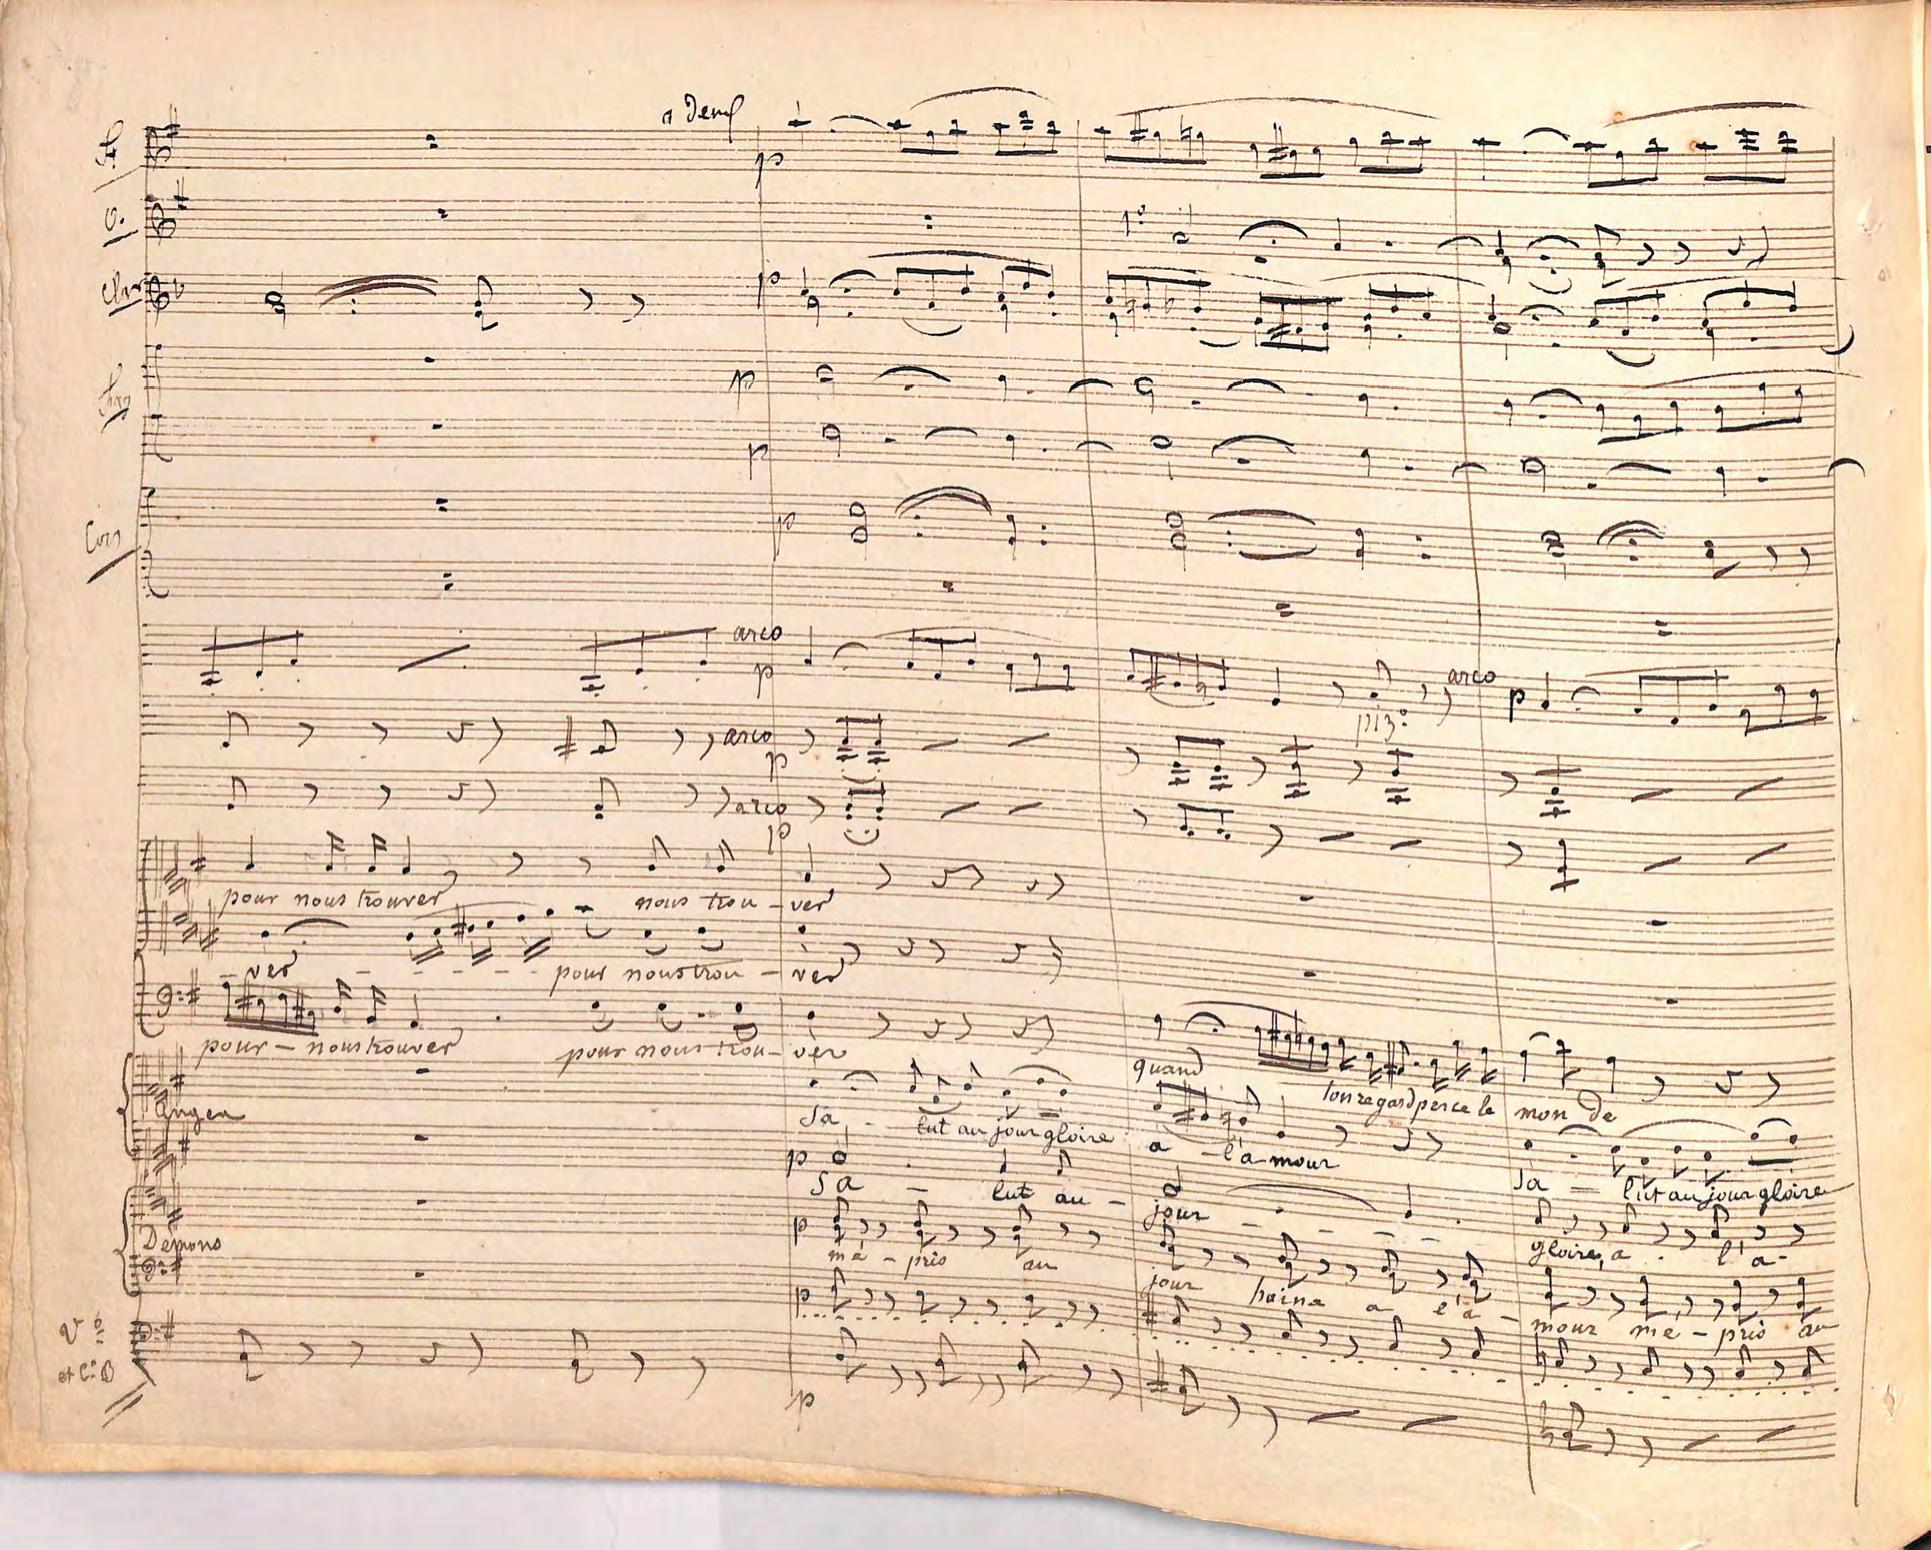 a Deux
fl
p
O.
1º
Clar
p
p
p
Cors
p
arco
p
piz:º
arco
p
arco
p
arco
p
pour nous trouver nous trou - ver
- ver - - - - - pour nous trou - ver
pour - nous trouver pour nous trou - ver
quand ton regard perce le mon de
Anges
Sa - lut au jour gloire a - l'a - mour Sa - lut au jour gloire
p
Sa - lut au - jour - - - gloire, a - l'a -
Démons
p
mé - pris au jour haine a l'a - mour mé - pris au
p
Vº
et C: B
p